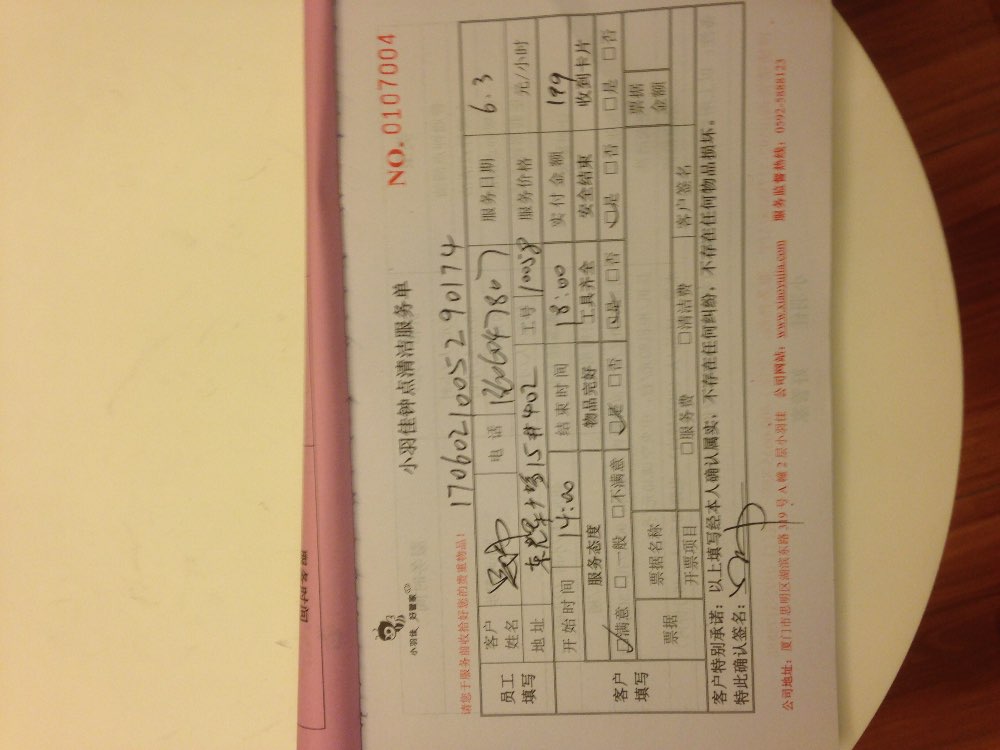 NO. 0107004
小羽佳钟点清洁服务单
小羽佳 好管家
请您于服务前收拾好您的贵重物品!
17060210052290174
员工填写 客户姓名 电话 服务日期 6.3
地址 15#402 工号 10058 服务价格 元/小时
开始时间 14:00 结束时间 18:00 实付金额 199
客户填写 服务态度 物品完好 工具齐全 安全结束 收到卡片
☑满意 □一般 □不满意 ☑是 □否 ☑是 □否 ☑是 □否 □是 □否
票据 票据名称 票据金额
开票项目 □服务费 □清洁费 客户签名
客户特别承诺:以上填写经本人确认属实,不存在任何纠纷,不存在任何物品损坏。
特此确认签名:
公司地址:厦门市思明区湖滨东路319号A幢2层小羽佳 公司网站:www.xiaoyujia.com 服务监督热线:0592-5888123